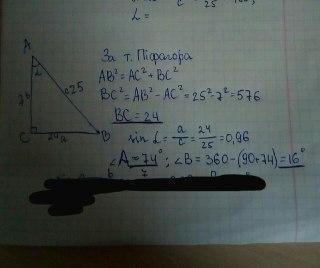 L =
25
A
L
7 b
c 25
C
24 a
B
За т. Піфагора
AB² = AC² + BC²
BC² = AB² - AC² = 25² - 7² = 576
BC = 24
sin L = a/c = 24/25 = 0,96
∠A ≈ 74°; ∠B = 360 - (90 + 74) = 16°